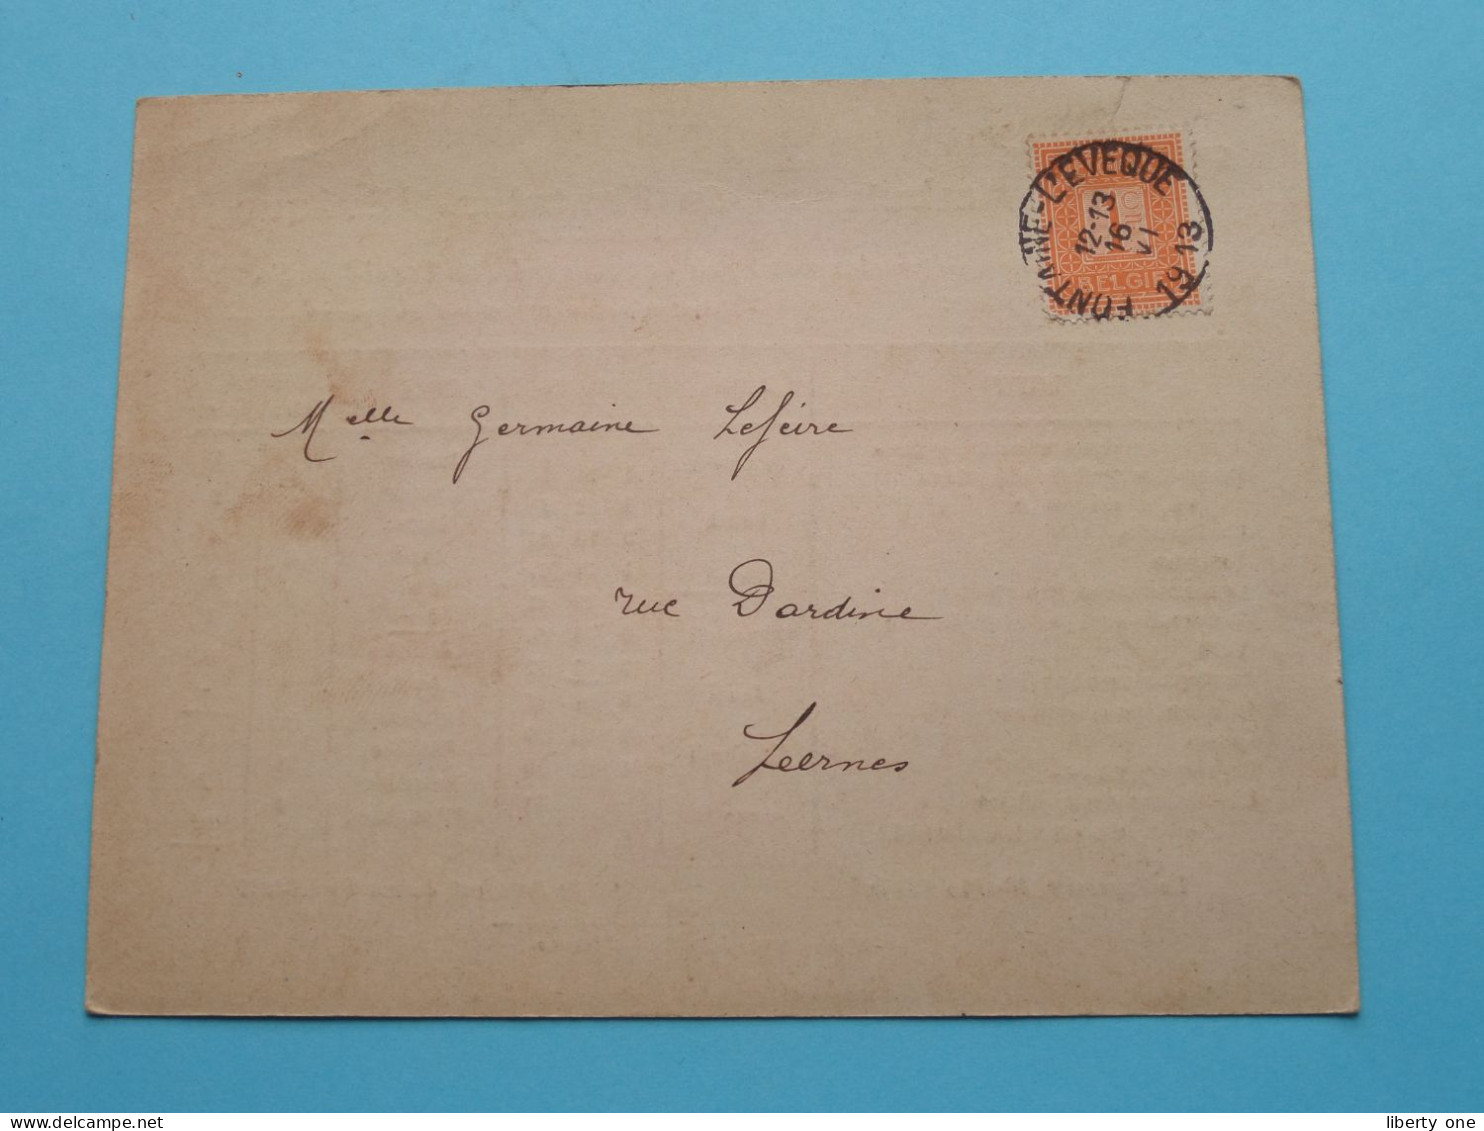 FONTAINE-L'EVEQUE
12-13
16
VI
1913
BELGI
1
Melle Germaine Lefèire
rue Dardine
Leernes
www.delcampe.net
liberty one